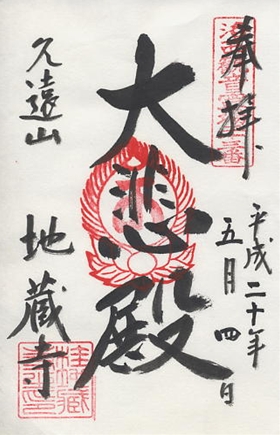 奉拝
平成二十年
五月四日
大悲殿
久遠山
地蔵寺